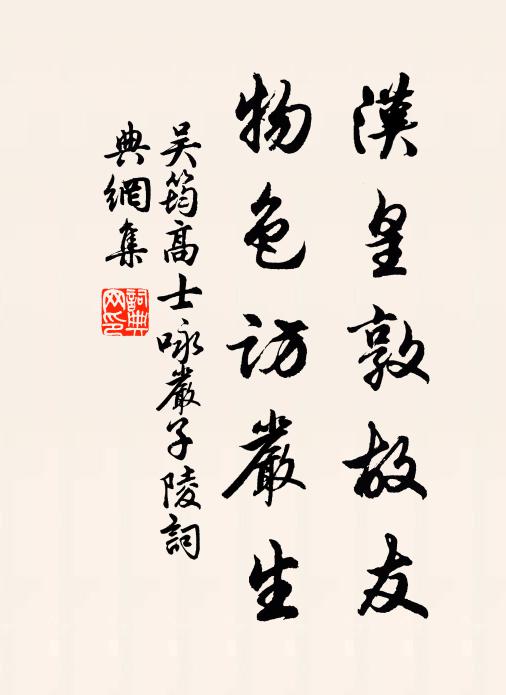 漢皇敦故友
物色訪嚴生
吳筠高士咏嚴子陵詞
典網集
詞典網印